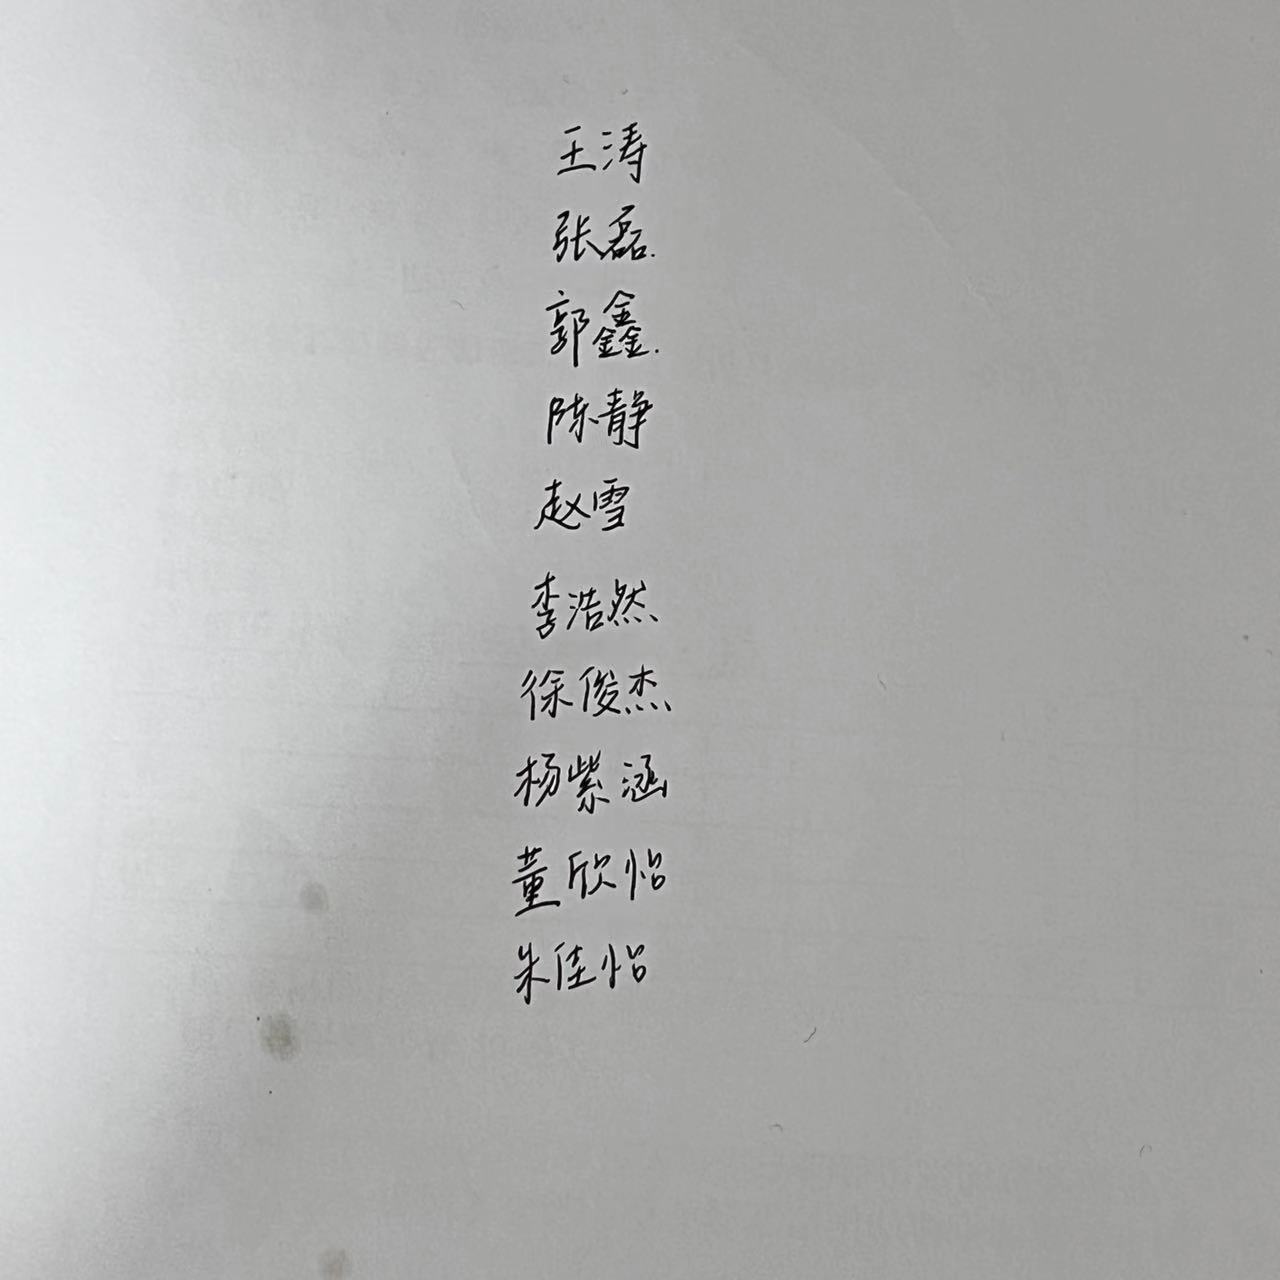 王涛
张磊.
郭鑫.
陈静
赵雪
李浩然
徐俊杰
杨紫涵
董欣怡
朱佳怡